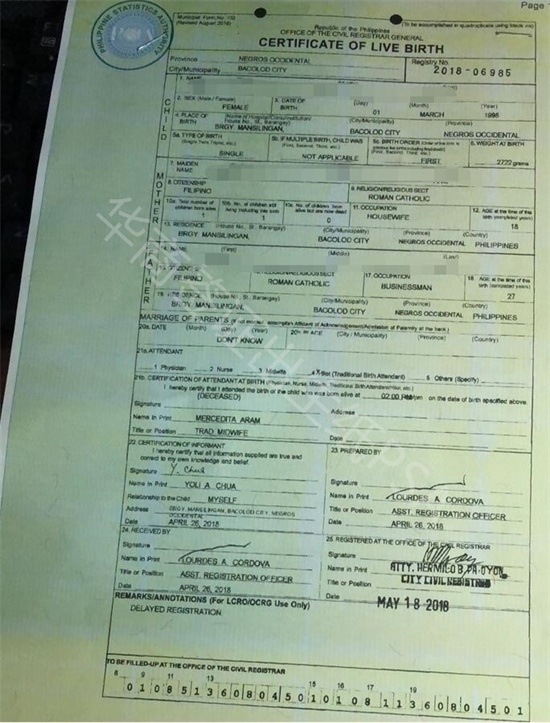 Page
Municipal Form No. 102
(Revised August 2016)
(To be accomplished in quadruplicate using black ink)
PHILIPPINE STATISTICS AUTHORITY
PSA
Republic of the Philippines
OFFICE OF THE CIVIL REGISTRAR GENERAL
CERTIFICATE OF LIVE BIRTH
Province NEGROS OCCIDENTAL
Registry No.
City/Municipality BACOLOD CITY
2018-06985
CHILD
1. NAME
2. SEX (Male / Female) 3. DATE OF BIRTH (Day) (Month) (Year)
FEMALE 01 MARCH
4. PLACE OF BIRTH (Name of Hospital/Clinic/Institution/ House No., St., Barangay) (City/Municipality) (Province)
BRGY. MANSILINGAN, BACOLOD CITY NEGROS OCCIDENTAL
5a. TYPE OF BIRTH (Single, Twin, Triplet, etc.) 5b. IF MULTIPLE BIRTH, CHILD WAS (First, Second, Third, etc.) 5c. BIRTH ORDER 6. WEIGHT AT BIRTH
SINGLE NOT APPLICABLE FIRST 2722 grams
MOTHER
7. MAIDEN NAME
8. CITIZENSHIP 9. RELIGION/RELIGIOUS SECT
FILIPINO ROMAN CATHOLIC
10a. Total number of children born alive 10b. No. of children still living including this birth 10c. No. of children born alive but are now dead 11. OCCUPATION 12. AGE at the time of this birth (completed years)
1 1 0 HOUSEWIFE 18
13. RESIDENCE (House No., St., Barangay) (City/Municipality) (Province) (Country)
BRGY. MANSILINGAN, BACOLOD CITY NEGROS OCCIDENTAL PHILIPPINES
FATHER
14. NAME (First) (Last)
15. CITIZENSHIP 16. RELIGION/RELIGIOUS SECT 17. OCCUPATION 18. AGE at the time of this birth (completed years)
FILIPINO ROMAN CATHOLIC BUSINESSMAN 27
19. RESIDENCE (House No., St., Barangay) (City/Municipality) (Province) (Country)
BRGY. MANSILINGAN, BACOLOD CITY NEGROS OCCIDENTAL PHILIPPINES
MARRIAGE OF PARENTS (If not married, accomplish Affidavit of Acknowledgement/Admission of Paternity at the back.)
20a. DATE (Month) (Day) (Year) 20b. PLACE (City/Municipality) (Province) (Country)
DON'T KNOW
21a. ATTENDANT
1 Physician 2 Nurse 3 Midwife 4 X Hilot (Traditional Birth Attendant) 5 Others (Specify)
21b. CERTIFICATION OF ATTENDANT AT BIRTH (Physician, Nurse, Midwife, Traditional Birth Attendant/Hilot, etc.)
I hereby certify that I attended the birth of the child who was born alive at 02:00 am/pm on the date of birth specified above.
(DECEASED)
Signature Address
Name in Print MERCEDITA ARAM
Title or Position TRAD. MIDWIFE Date
22. CERTIFICATION OF INFORMANT
I hereby certify that all information supplied are true and correct to my own knowledge and belief.
Signature Y. Chua
Name in Print YOLI A. CHUA
Relationship to the Child MYSELF
Address BRGY. MANSILINGAN, BACOLOD CITY, NEGROS OCCIDENTAL
Date APRIL 26, 2018
23. PREPARED BY
Signature
Name in Print LOURDES A. CORDOVA
Title or Position ASST. REGISTRATION OFFICER
Date APRIL 26, 2018
24. RECEIVED BY
Signature
Name in Print LOURDES A. CORDOVA
Title or Position ASST. REGISTRATION OFFICER
Date APRIL 26, 2018
25. REGISTERED AT THE OFFICE OF THE CIVIL REGISTRAR
Signature
Name in Print ATTY. HERMILO B. PA-OYON
Title or Position CITY CIVIL REGISTRAR
Date MAY 18 2018
REMARKS/ANNOTATIONS (For LCRO/OCRG Use Only)
DELAYED REGISTRATION
TO BE FILLED-UP AT THE OFFICE OF THE CIVIL REGISTRAR
8 9 11 13 15 16 17 19